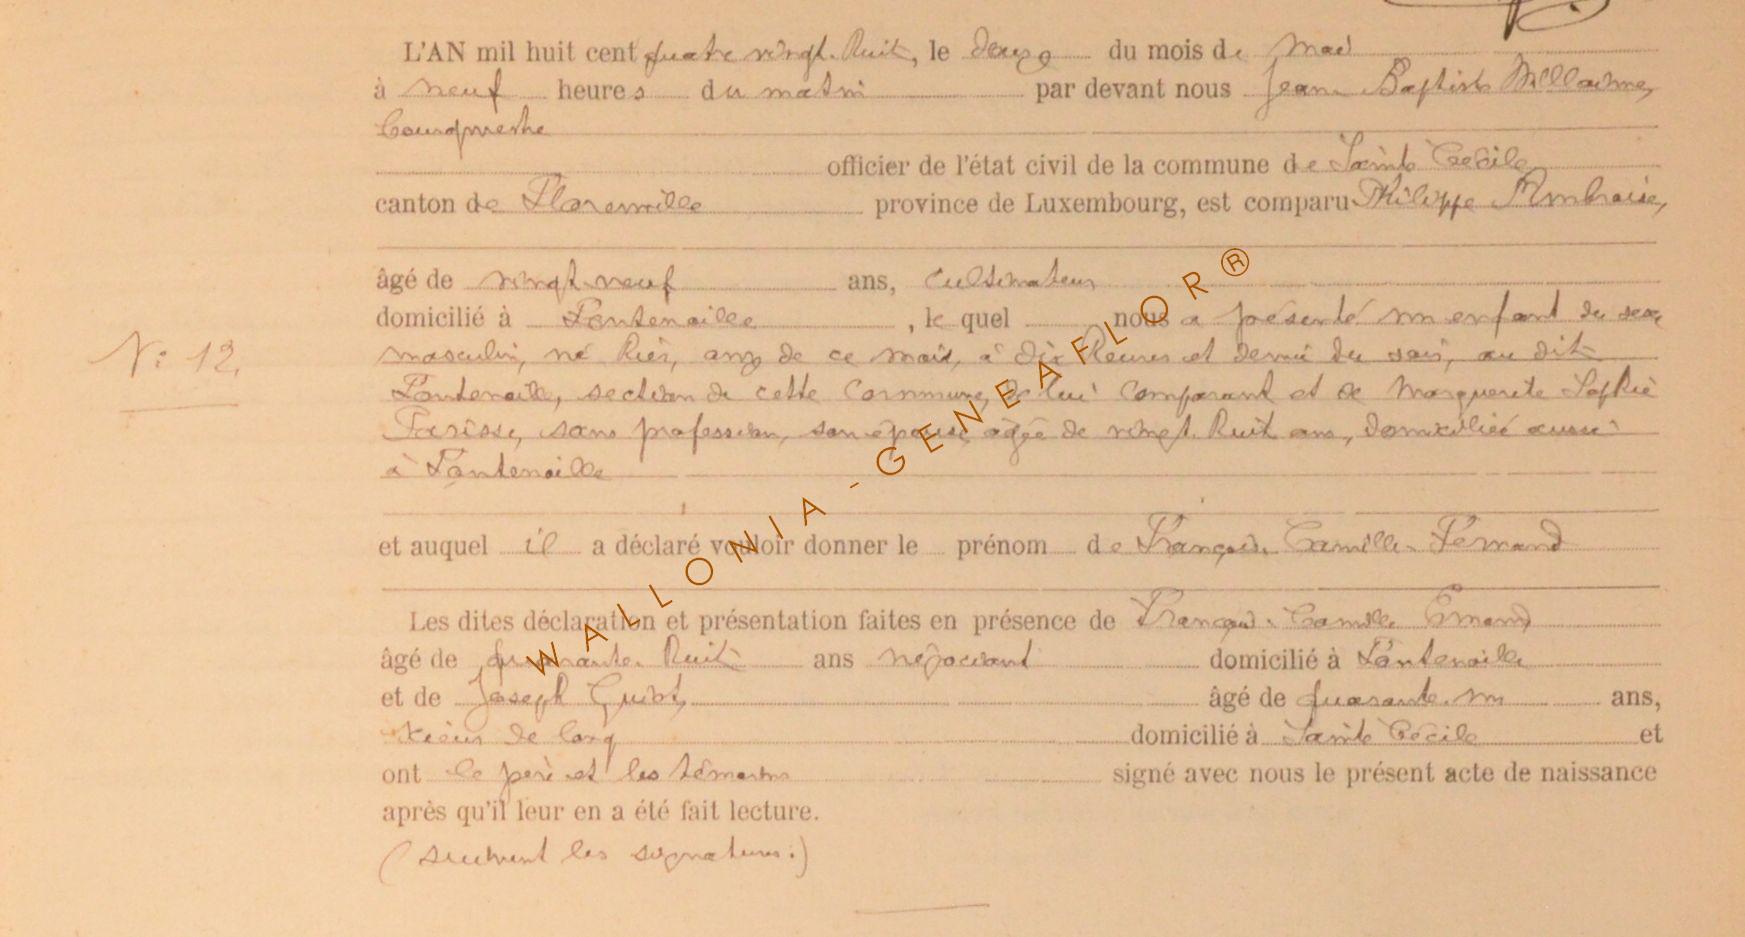 L'AN mil huit cent quatre vingt-huit, le douze du mois de Mai
à neuf heures du matin par devant nous Jean Baptiste
Bourgmestre
officier de l'état civil de la commune de Sainte Cécile
canton de Florenville province de Luxembourg, est comparu Philippe Ambroise,
âgé de vingt-neuf ans, cultivateur
domicilié à Fontenoille, lequel nous a présenté un enfant du sexe
N: 12.
masculin, né hier, onze de ce mois, à dix heures et demie du soir, au dit
Fontenoille, section de cette commune, de lui comparant et de Marguerite Sophie
Parisse, sans profession, son épouse, âgée de vingt-huit ans, domiciliée aussi
à Fontenoille
et auquel il a déclaré vouloir donner le prénom de François-Camille-Fernand
Les dites déclaration et présentation faites en présence de François-Camille Emond
âgé de quarante-huit ans négociant domicilié à Fontenoille
et de Joseph Guiot, âgé de quarante-un ans,
de long domicilié à Sainte Cécile et
ont le père et les témoins signé avec nous le présent acte de naissance
après qu'il leur en a été fait lecture.
(suivent les signatures.)
WALLONIA-GENEAFLOR®